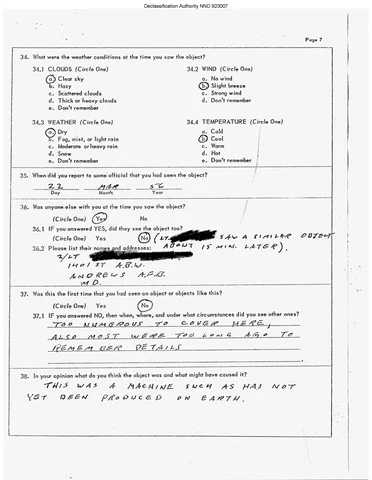 Declassification Authority NND 923007
Page 7
34. What were the weather conditions at the time you saw the object?
34.1 CLOUDS (Circle One) 34.2 WIND (Circle One)
a. Clear sky a. No wind
b. Hazy b. Slight breeze
c. Scattered clouds c. Strong wind
d. Thick or heavy clouds d. Don't remember
e. Don't remember
34.3 WEATHER (Circle One) 34.4 TEMPERATURE (Circle One)
a. Dry a. Cold
b. Fog, mist, or light rain b. Cool
c. Moderate or heavy rain c. Warm
d. Snow d. Hot
e. Don't remember e. Don't remember
35. When did you report to some official that you had seen the object?
22 MAR 56
Day Month Year
36. Was anyone else with you at the time you saw the object?
(Circle One) Yes No
36.1 IF you answered YES, did they see the object too?
(Circle One) Yes No (LT. SAW A SIMILAR OBJECT
ABOUT 15 MIN. LATER).
36.2 Please list their names and addresses:
2/LT
1401ST A.B.W.
ANDREWS A.F.B.
MD.
37. Was this the first time that you had seen an object or objects like this?
(Circle One) Yes No
37.1 IF you answered NO, then when, where, and under what circumstances did you see other ones?
TOO NUMEROUS TO COVER HERE,
ALSO MOST WERE TOO LONG AGO TO
REMEMBER DETAILS
38. In your opinion what do you think the object was and what might have caused it?
THIS WAS A MACHINE SUCH AS HAS NOT
YET BEEN PRODUCED ON EARTH.